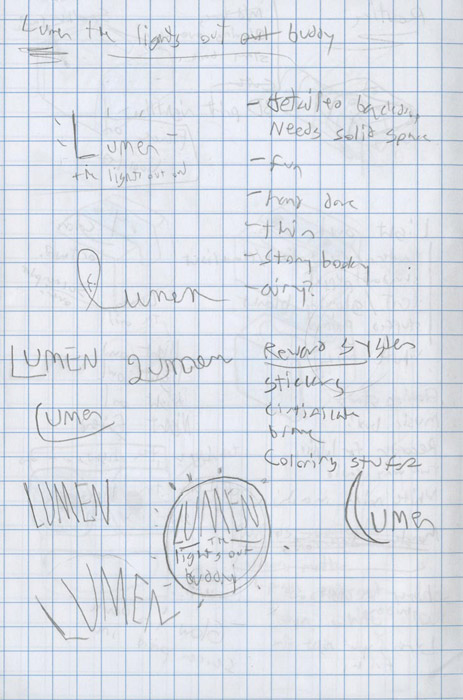 Lumen the lights out buddy
Lumen
the lights out
- detailed
Needs solid space
- fun
- hand done
- thin
- story booky
- airy?
Lumen
LUMEN Lumen
Reward system
Stickers
Lumen
Coloring stuff?
LUMEN
LUMEN
THE
lights out
buddy
Lumen
LUMEN